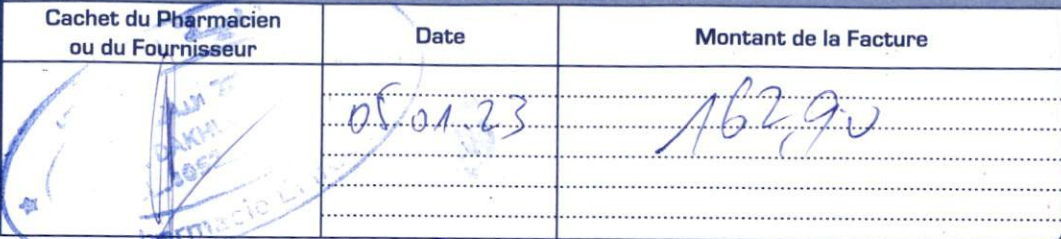 Cachet du Pharmacien
ou du Fournisseur
Date
Montant de la Facture
05.01.23
162,90